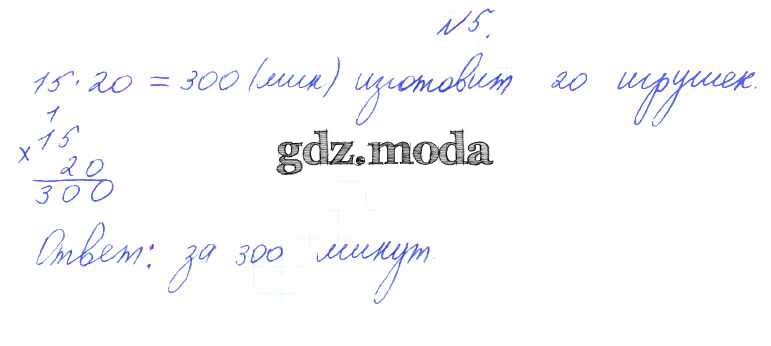 №5.
15·20 = 300 (мин) изготовит 20 игрушек.
1
×15
20
300
gdz.moda
Ответ: за 300 минут.